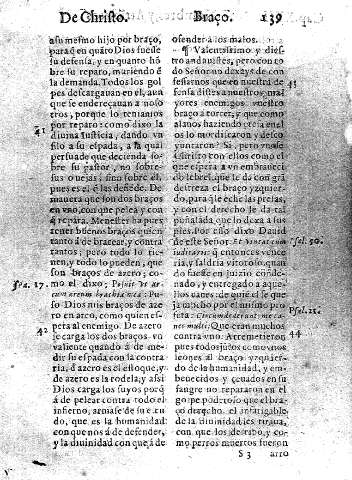 De Christo. Braço. 139
a su mesmo hijo por braço,
para q̃ en quãto Dios fuese
su defensa, y en quanto hõ
bre su reparo, muriendo ē
la demanda. Todos los gol
pes descargauan en el, aun
que se endereçauan a noso
tros, porque lo teniamos
por reparo: como dixo la
41
diuina Justicia, dando vn
filo a su espada, a la qual
persuade que decienda so
bre su pastor, no sobre
sus ouejas, sino sobre el,
pues es el q̃ las defiēde. De
manera que son dos braços
en vno, con que pelea y con q̃
repara. Menester ha pues
tener buenos braços quien
tanto à de bracear, y contra
tantos; pero todo lo tie-
nen, y todo lo pueden, que
son braços de azero; co-
Psa. 17.
mo el dixo; Posuit vt ar-
cum æreum brachia mea: Pu-
so Dios mis braços de aze
ro en arco, como quien es-
pera al enemigo. De azero
42
le carga los dos braços, vn
valiente quando à de me-
dir su espada con la contra
ria, q̃ azero es el estoque, y
de azero es la rodela, y asi
Dios carga los suyos por q̃
à de pelear contra todo el
infierno, armase de su escu
do, que es la humanidad
con que nos à de defender,
y la diuinidad con que à de
ofender a los malos.
¶ Valentissimo y dies-
tro andauistes, pero con to
43
do Señor no dexays de con-
fessarnos que en nuestra de
fensa distes a nuestros ma-
yores enemigos vuestro
braço a torcer, y que como
alanos haziendo presa en el
los lo mordieron y desco
yuntaron? Si, pero vuose
Christo con ellos como el
que espera a vn embraueci
do lebrel, que le da con grã
destreza el braço yzquier-
do, para q̃ le eche las presas,
y con el derecho le da tal
puñalada que dexa a sus
pies. Por esto dixo Dauid
Psal. 50.
de este Señor. Et vincas cum
iudicaris: q̃ entonces vence
ria, y saldria vitorioso, quan
do fuese en juizio conde-
nado, y entregado a aque-
llos canes: de quien el se que
xa mucho por el mesmo pro
Psal. 21.
feta: Circundederunt me ca-
nes multi: Que eran muchos
44
contra vno. Arremetieron
pues todos juntos como vnos
leones al braço yzquier-
do de la humanidad, y em-
beuecidos y ceuados en su
sangre no repararon en el
golpe podcroso que el bra-
ço derecho, el infatigable
de la diuinidad les tiraua,
con que los derribo, y co-
mo perros muertos fueron
S 3 arro